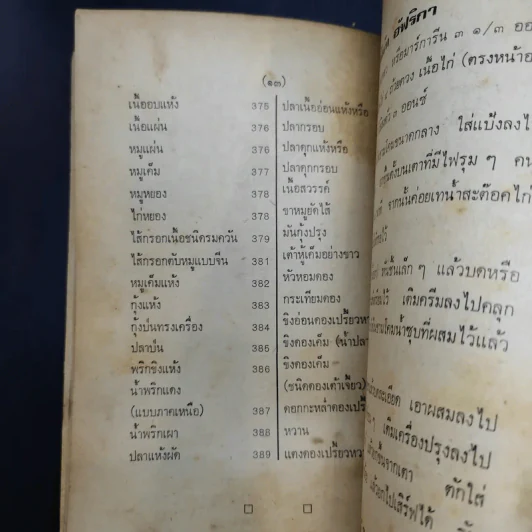 (๑๓)
เนื้ออบแห้ง 375
เนื้อแผ่น 376
หมูแผ่น 376
หมูเค็ม 377
หมูหยอง 378
ไก่หยอง 378
ไส้กรอกเนื้อชนิดรมควัน 379
ไส้กรอกตับหมูแบบจีน 381
หมูเค็มแห้ง 382
กุ้งแห้ง 383
กุ้งป่นทรงเครื่อง 384
ปลาป่น 385
พริกขิงแห้ง 386
น้ำพริกแดง
(แบบภาคเหนือ) 387
น้ำพริกเผา 388
ปลาแห้งผัด 389
ปลาเนื้ออ่อนแห้งหรือ
ปลากรอบ
ปลาดุกแห้งหรือ
ปลาดุกกรอบ
เนื้อสวรรค์
ขาหมูยัดไส้
มันกุ้งปรุง
เต้าหู้เค็มอย่างขาว
หัวหอมดอง
กระเทียมดอง
ขิงอ่อนดองเปรี้ยวหว
ขิงดองเค็ม (น้ำปลา
ขิงดองเค็ม
(ชนิดดองเต้าเจี้ยว)
ดอกกะหล่ำดองเปรี้
หวาน
แตงดองเปรี้ยวหว
อัฟริกา
หรือมาร์การีน ๓ ๑/๓ ออ
ถ้วยตวง เนื้อไก่ (ตรงหน้าอ
๓ ออนซ์
ขนาดกลาง ใส่แป้งลงไ
ตั้งบนเตาที่มีไฟรุม ๆ คน
จากนั้นค่อยเทน้ำสะต๊อคไก่
หั่นชิ้นเล็ก ๆ แล้วบดหรือ
เติมครีมลงไปคลุก
น้ำซุปที่ผสมไว้แล้ว
เอาผสมลงไป
เติมเครื่องปรุงลงไป
ตักใส่